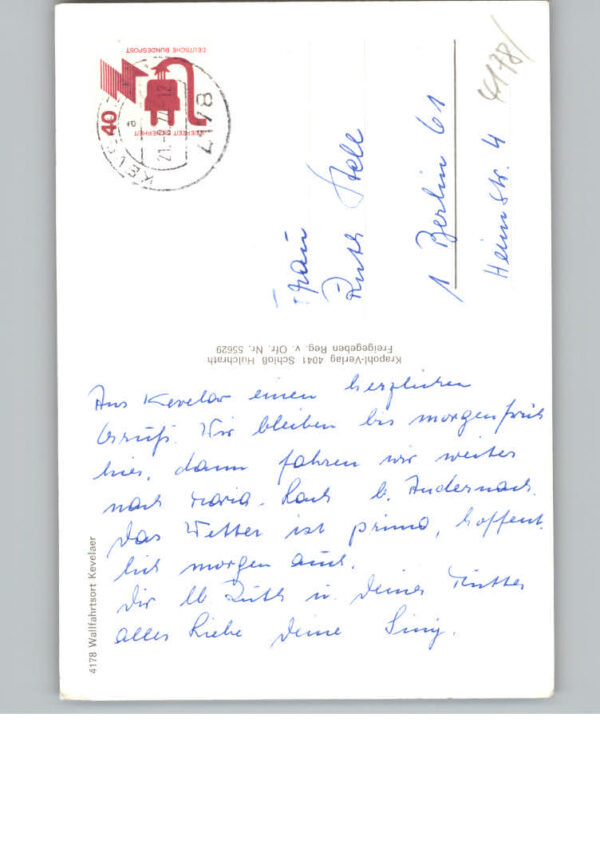 Aus Kevelar einen herzlichen
Gruß. Wir bleiben bis morgen früh
hier, dann fahren wir weiter
nach Maria-Laach b. Andernach.
Das Wetter ist prima, hoffent-
lich morgen auch.
Dir lb. Ruth u. deiner Mutter
alles Liebe Deine
Frau
Ruth
1 Berlin 61
Heimstr. 4
4178/
DEUTSCHE BUNDESPOST
JEDERZEIT SICHERHEIT
40
4178
Krapohl-Verlag 4041 Schloß Hülchrath
Freigegeben Reg. v. Ofr. Nr. 55629
4178 Wallfahrtsort Kevelaer